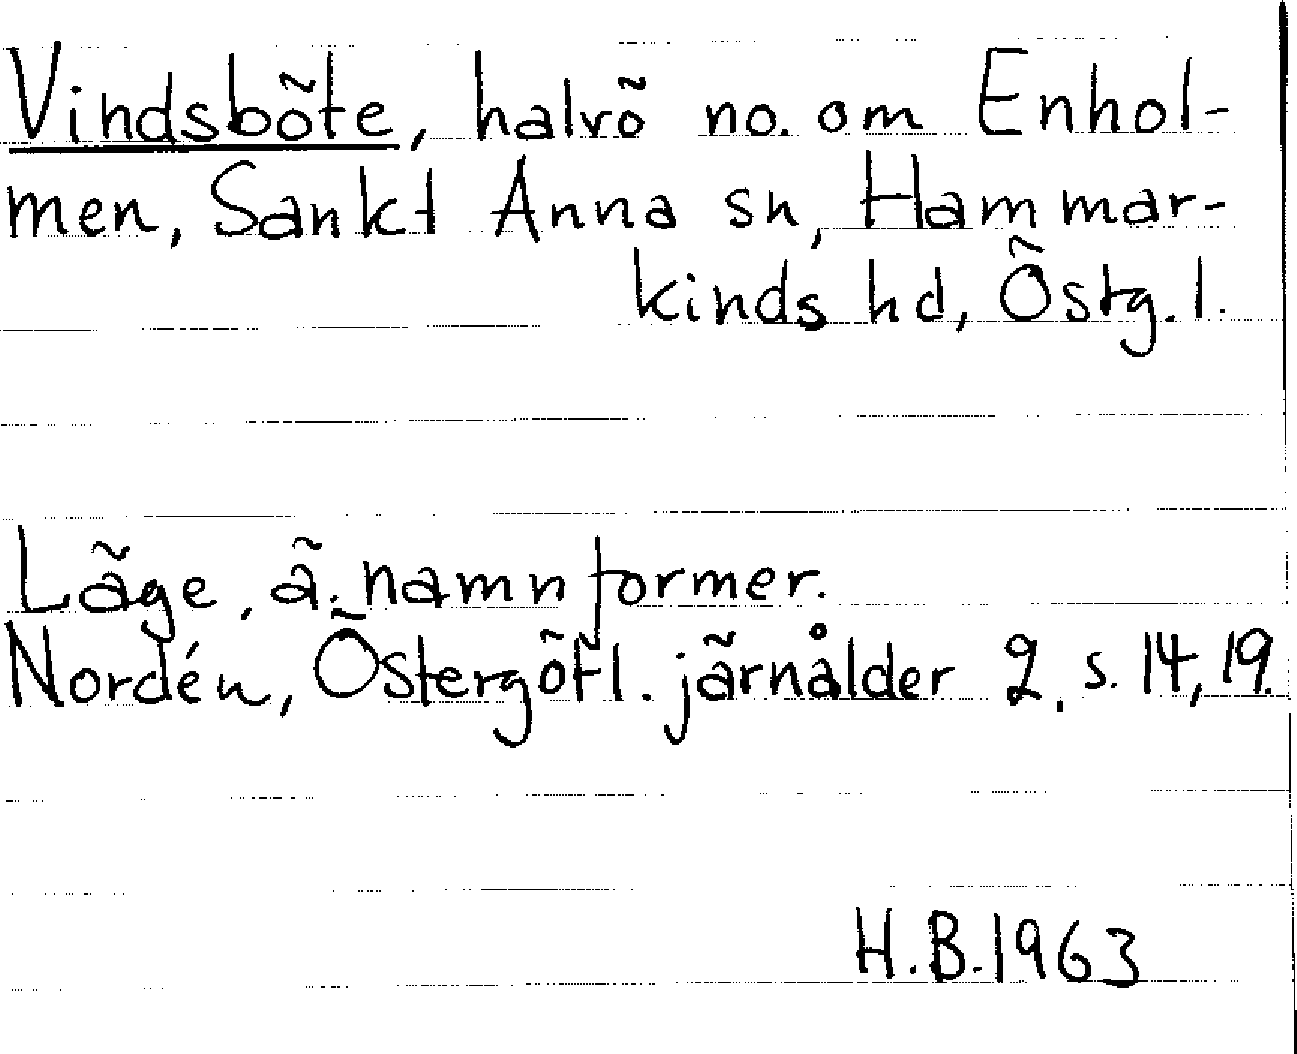 Vindsböte, halvö no. om Enhol-
men, Sankt Anna sn, Hammar-
kinds hd, Östg. l.
Läge, ä. namnformer.
Nordén, Östergötl. järnålder 2, s. 14, 19.
H.B. 1963